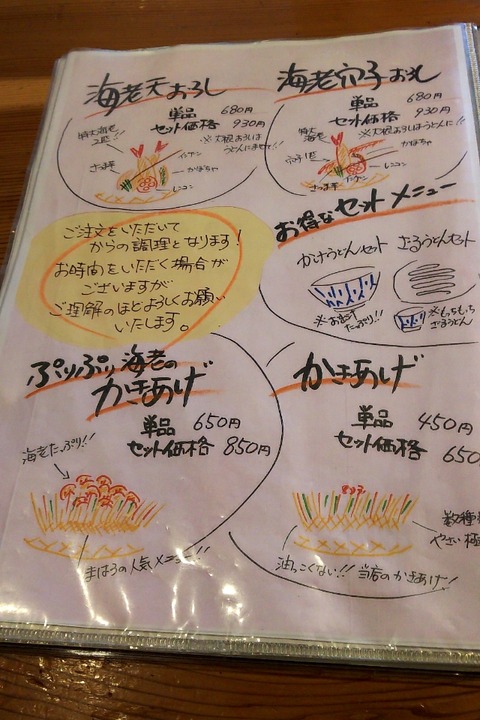 海老天おろし
単品 680円
セット価格 930円
※大根おろしは
うどんにませて!!
特大海老
2匹
インゲン
かぼちゃ
さつま芋
レンコン
海老穴子おろし
単品 680円
セット価格 930円
※大根おろしうどんに!!
特大
海老
かぼちゃ
穴子1匹
レンコン
インゲン
さつま芋
ご注文をいただいて
からの調理となります!
お時間をいただく場合が
ございますが
ご理解のほどよろしくお願い
いたします。
お得なセットメニュー
かけうどんセット
ざるうどんセット
たっぷり!!
※もちもち
ざるうどん
ぷりぷり海老の
かきあげ
単品 650円
セット価格 850円
海老たっぷり!!
まほろの人気メニュー!!
かきあげ
単品 450円
セット価格 650
数種
やさい
油っこくない!! 当店のかきあげ!